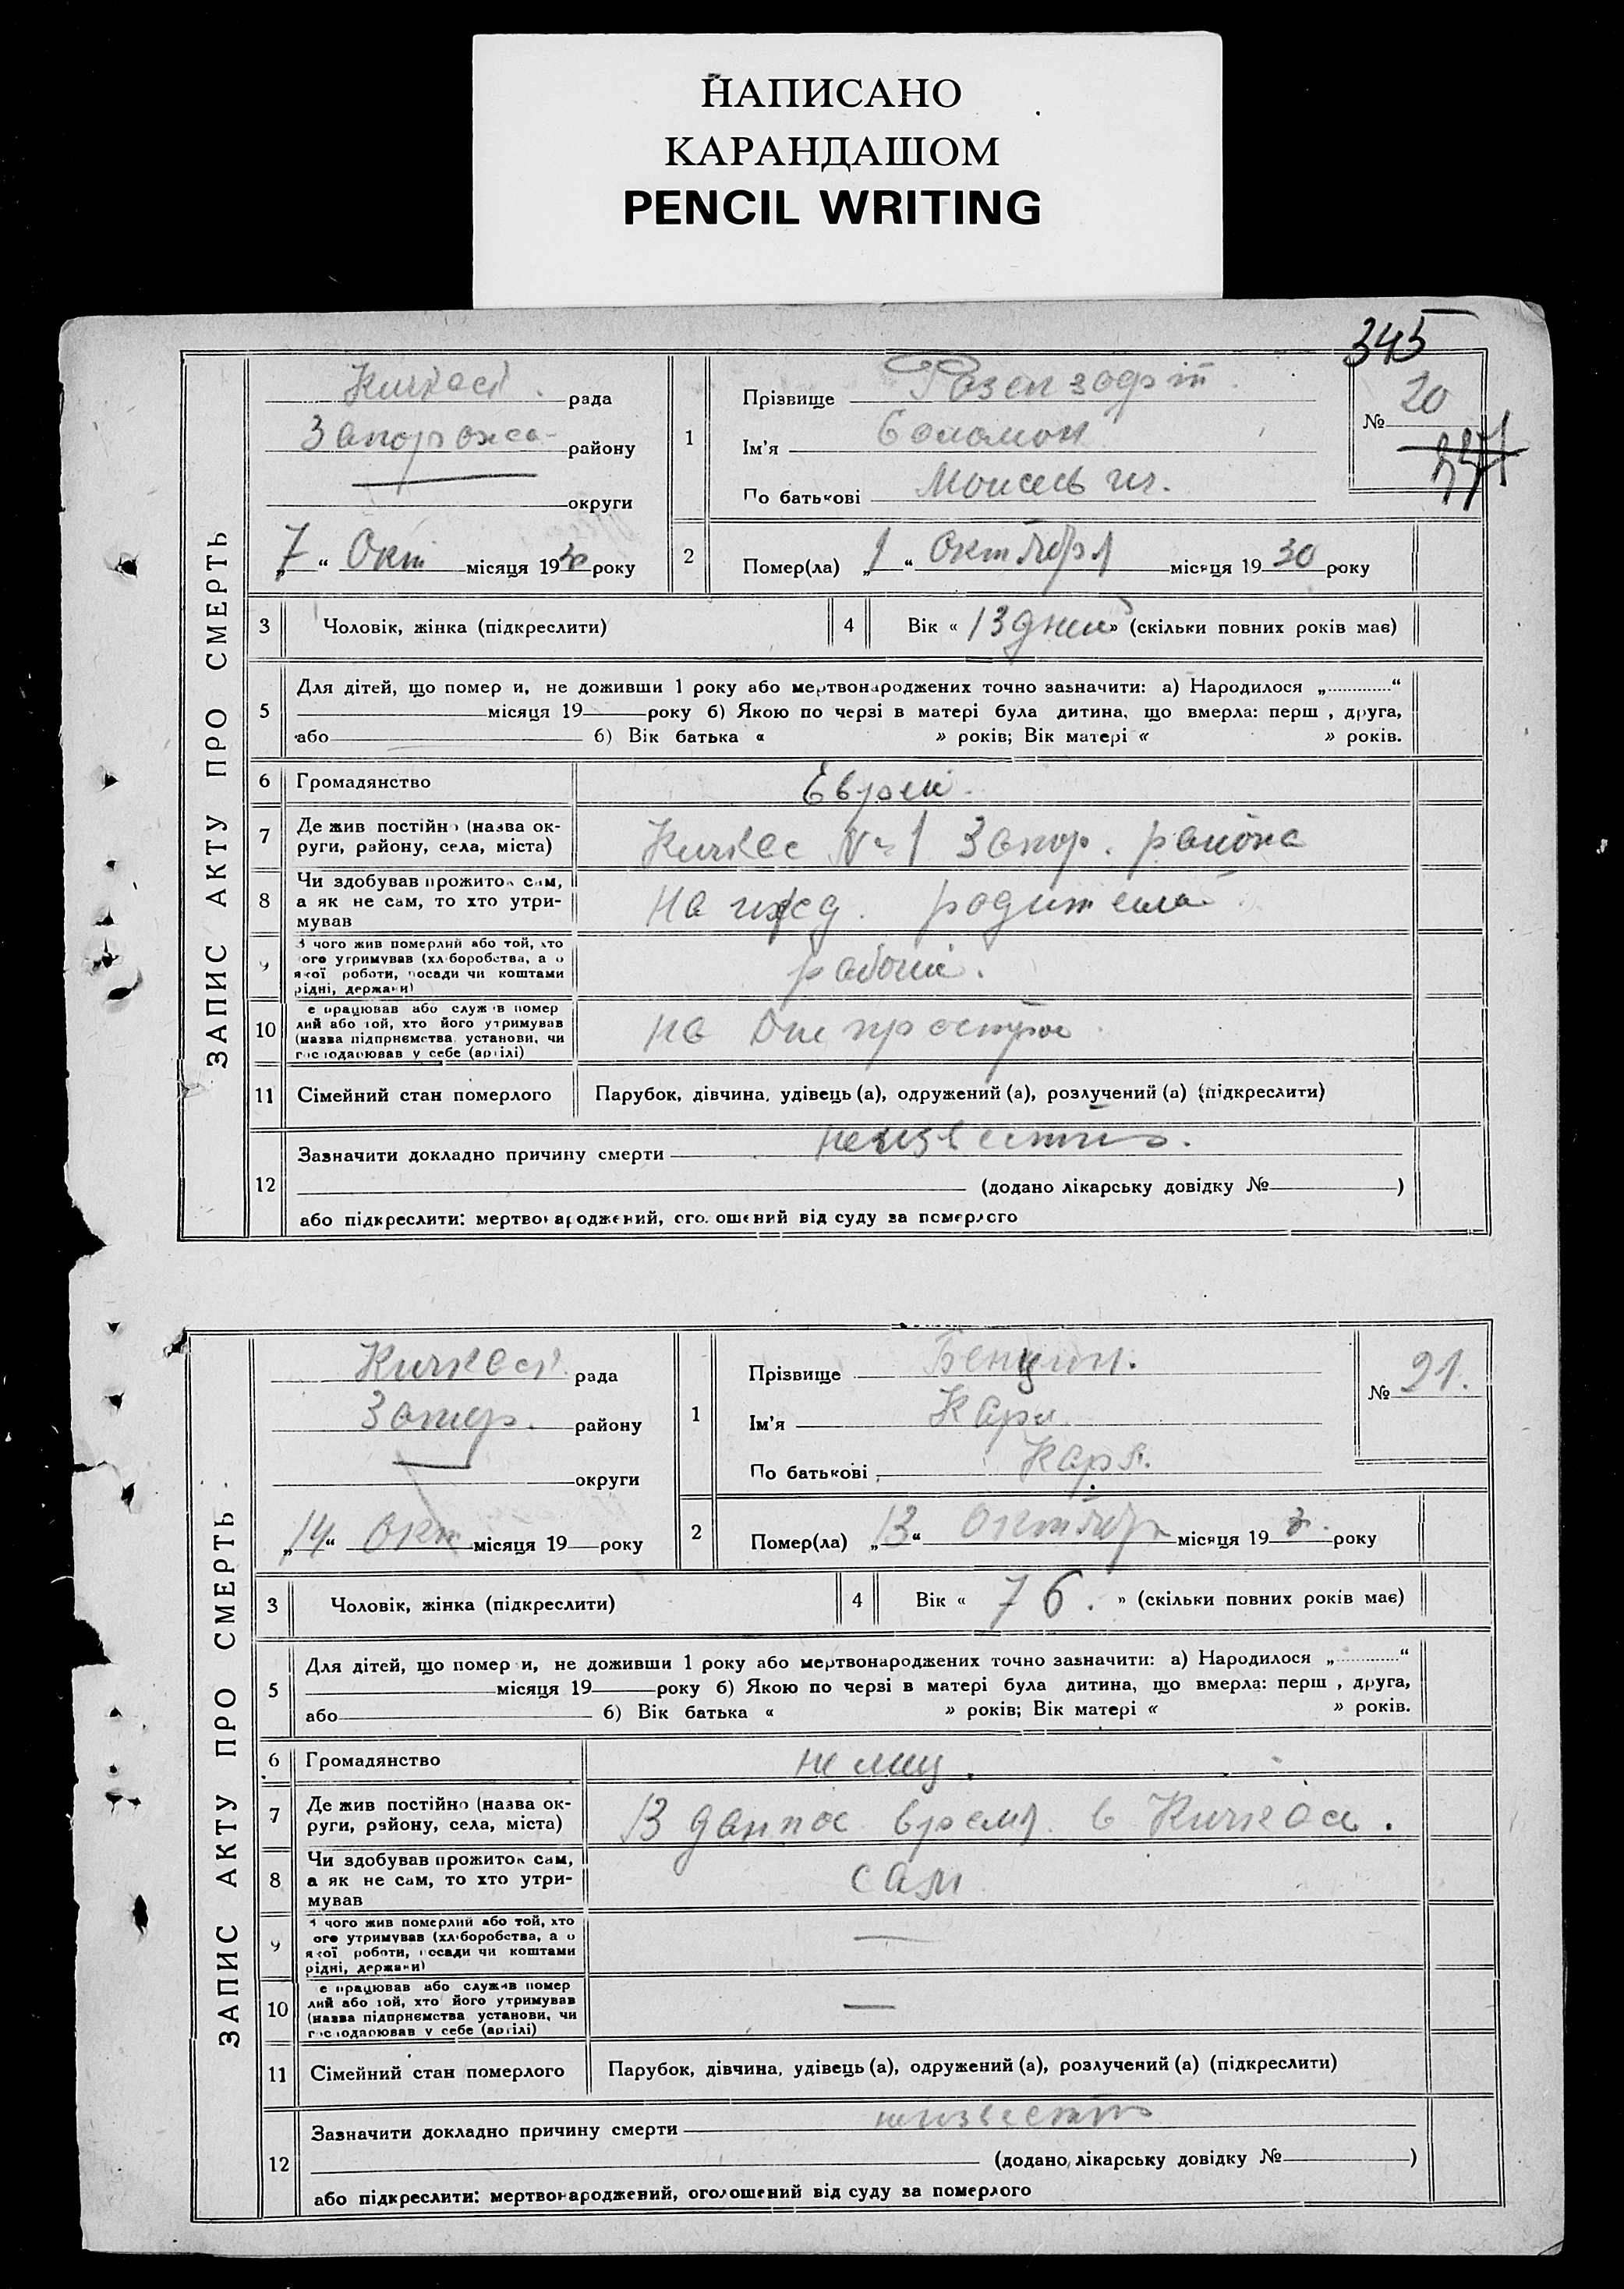 НАПИСАНО
КАРАНДАШОМ
PENCIL WRITING
345
ЗАПИС АКТУ ПРО СМЕРТЬ
Кичкас рада
Запорожс- району
округи
„7“ Окт місяця 1930 року
1
Прізвище Розензафт
Ім'я Соломон
По батькові Моисеевич.
№ 20
2 Помер(ла) „1“ Октября місяця 1930 року
3 Чоловік, жінка (підкреслити)
4 Вік «13 дней» (скільки повних років має)
5 Для дітей, що померли, не доживши 1 року або мертвонароджених точно зазначити: а) Народилося „............“
місяця 19 року б) Якою по черзі в матері була дитина, що вмерла: перш , друга,
або б) Вік батька « » років; Вік матері « » років.
6 Громадянство Еврей.
7 Де жив постійно (назва ок-
руги, району, села, міста) Кичкас № 1 Запор. района
8 Чи здобував прожиток сам,
а як не сам, то хто утри-
мував На ижд. родителей
9 З чого жив померлий або той, хто
ого утримував (хліборобства, а о
якої роботи, посади чи коштами
рідні, держави) рабочий.
10 е працював або служив помер
лий або той, хто його утримував
(назва підприємства, установи, чи
господарював у себе (артілі) на Днепрострое.
11 Сімейний стан померлого Парубок, дівчина, удівець (а), одружений (а), розлучений (а) (підкреслити)
12 Зазначити докладно причину смерти неизвестно.
(додано лікарську довідку № )
або підкреслити: мертвонароджений, оголошений від суду за померлого
ЗАПИС АКТУ ПРО СМЕРТЬ
Кичкас рада
Запор. району
округи
„14“ Окт місяця 19 року
1
Прізвище Бенцин.
Ім'я Карл
По батькові Карл.
№ 21.
2 Помер(ла) „13“ Октября місяця 193 року
3 Чоловік, жінка (підкреслити)
4 Вік « 76. » (скільки повних років має)
5 Для дітей, що померли, не доживши 1 року або мертвонароджених точно зазначити: а) Народилося „............“
місяця 19 року б) Якою по черзі в матері була дитина, що вмерла: перш , друга,
або б) Вік батька « » років; Вік матері « » років.
6 Громадянство немец.
7 Де жив постійно (назва ок-
руги, району, села, міста) В данное время в Кичкасе.
8 Чи здобував прожиток сам,
а як не сам, то хто утри-
мував сам
9 З чого жив померлий або той, хто
ого утримував (хліборобства, а о
якої роботи, посади чи коштами
рідні, держави) —
10 е працював або служив помер
лий або той, хто його утримував
(назва підприємства, установи, чи
господарював у себе (артілі) —
11 Сімейний стан померлого Парубок, дівчина, удівець (а), одружений (а), розлучений (а) (підкреслити)
12 Зазначити докладно причину смерти неизвестно
(додано лікарську довідку № )
або підкреслити: мертвонароджений, оголошений від суду за померлого